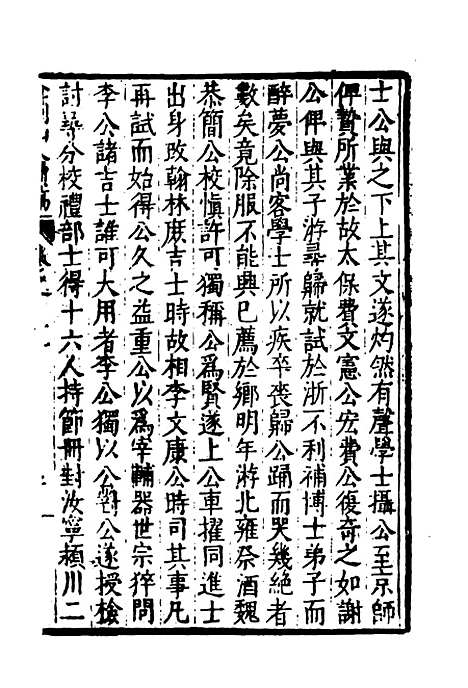 士公與之下上其文遂灼然有聲學士攝公至京師
俾贄所業於故太保費文憲公宏費公復奇之如謝
公俾與其子游尋歸就試於浙不利補博士弟子而
醉夢公尚客學士所以疾卒喪歸公踊而哭幾絕者
數矣竟除服不能興已薦於鄉明年游北雍祭酒魏
恭簡公校慎許可獨稱公為賢遂上公車擢同進士
出身改翰林庶吉士時故相李文康公時司其事凡
再試而始得公久之益重公以為宰輔器世宗猝問
李公諸吉士誰可大用者李公獨以公對公遂授檢
討尋分校禮部士得十六人持節冊封汝寧潁川二